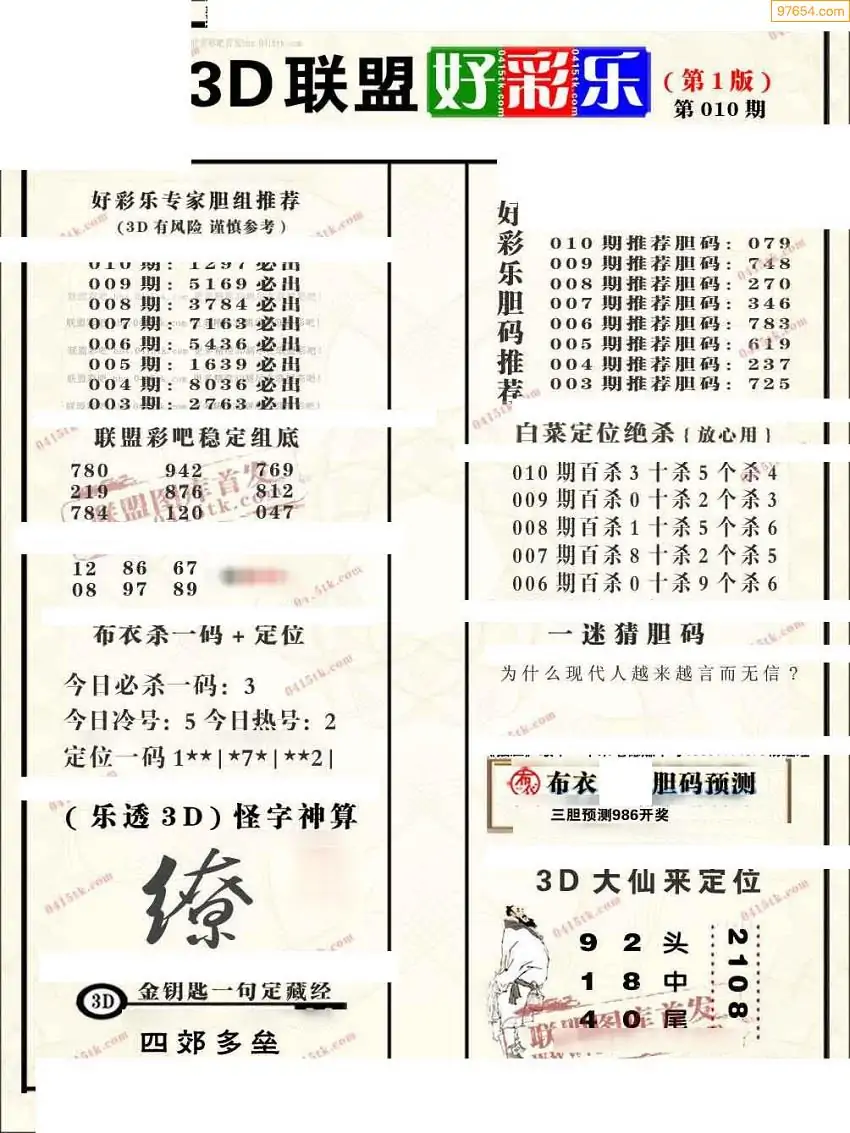 97654.com
3D联盟好彩乐
(第1版)
第010期
好彩乐专家胆组推荐
(3D有风险 谨慎参考)
010期: 1297必出
009期: 5169必出
008期: 3784必出
007期: 7163必出
006期: 5436必出
005期: 1639必出
004期: 8036必出
003期: 2763必出
联盟彩吧稳定组底
780 942 769
219 876 812
784 120 047
12 86 67
08 97 89
布衣杀一码+定位
今日必杀一码: 3
今日冷号: 5 今日热号: 2
定位一码 1**|*7*|**2|
(乐透3D)怪字神算
缭
3D 金钥匙一句定藏经
四郊多垒
好彩乐胆码推荐
010期推荐胆码: 079
009期推荐胆码: 748
008期推荐胆码: 270
007期推荐胆码: 346
006期推荐胆码: 783
005期推荐胆码: 619
004期推荐胆码: 237
003期推荐胆码: 725
白菜定位绝杀{放心用}
010期百杀3十杀5个杀4
009期百杀0十杀2个杀3
008期百杀1十杀5个杀6
007期百杀8十杀2个杀5
006期百杀0十杀9个杀6
一迷猜胆码
为什么现代人越来越言而无信?
布衣 胆码预测
三胆预测986开奖
3D大仙来定位
9 2 头
1 8 中
4 0 尾
2108
联盟图库首发
0415tk.com